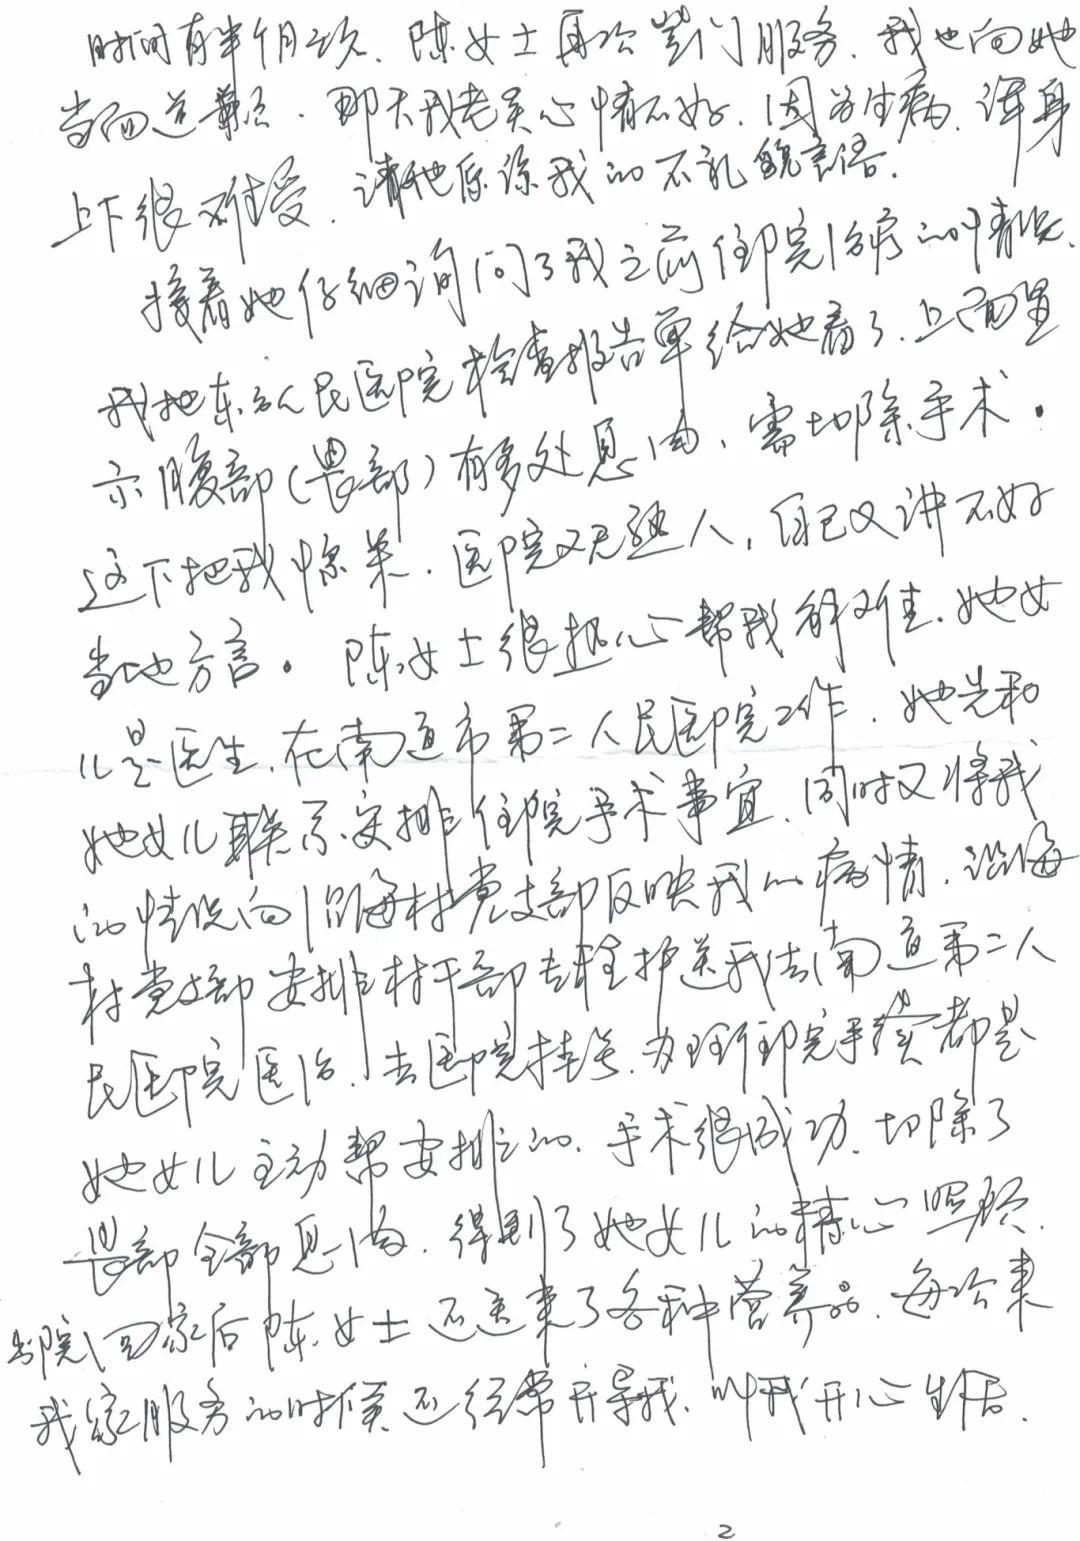 时间有半个月之久、陈女士再次登门服务、我也向她
当面道歉、那天我老关心情不好、因为生病、浑身
上下很难受、请她原谅我的不礼貌言语.
接着她仔细询问了我之前住院治病的情况、
我把东方人民医院检查报告单给她看了、上面显
示腹部(胃部)有多处息肉、需切除手术.
这下把我惊呆、医院又无熟人、自己又讲不好
当地方言。陈女士很热心帮我解难、她女
儿是医生、在南通市第二人民医院工作、她先和
她女儿联系、安排住院手术事宜、同时又将我
的情况向沿海村党支部反映我的病情、沿海
村党支部安排村干部专程护送我去南通第二人
民医院医治、去医院挂号、办理住院手续都是
她女儿主动帮安排的、手术很成功、切除了
胃部全部息肉、得到了她女儿的精心照顾、
出院回家后陈女士还送来了各种营养品、每次来
我家服务的时候还经常开导我、叫我开心生活.
2